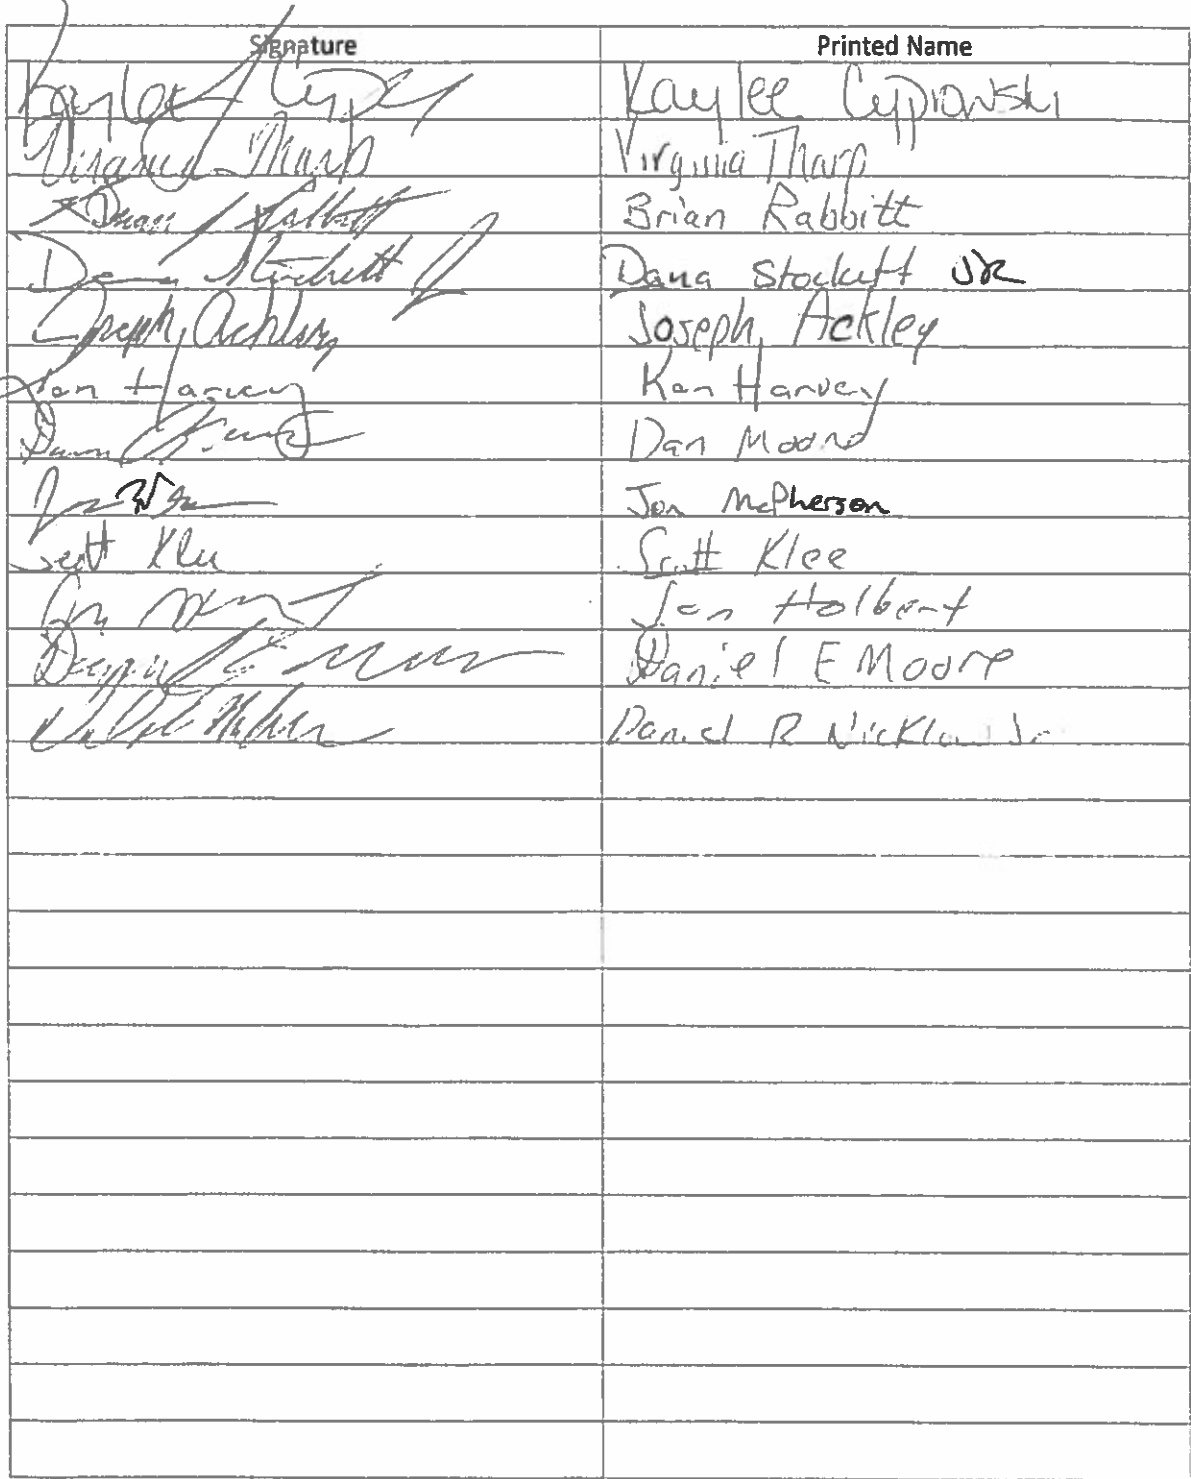 Signature Printed Name
Kaylee Cyp Kaylee Cyprowski
Virginia Tharp Virginia Tharp
Brian Rabbitt Brian Rabbitt
Dana Stockett Jr Dana Stockett JR
Joseph Ackley Joseph Ackley
Ken Harvey Ken Harvey
Dan Dan Moore
Jon McPherson
Scott Klee Scott Klee
Holbert
Daniel E Moore Daniel E Moore
Daniel R Nicklow Jr